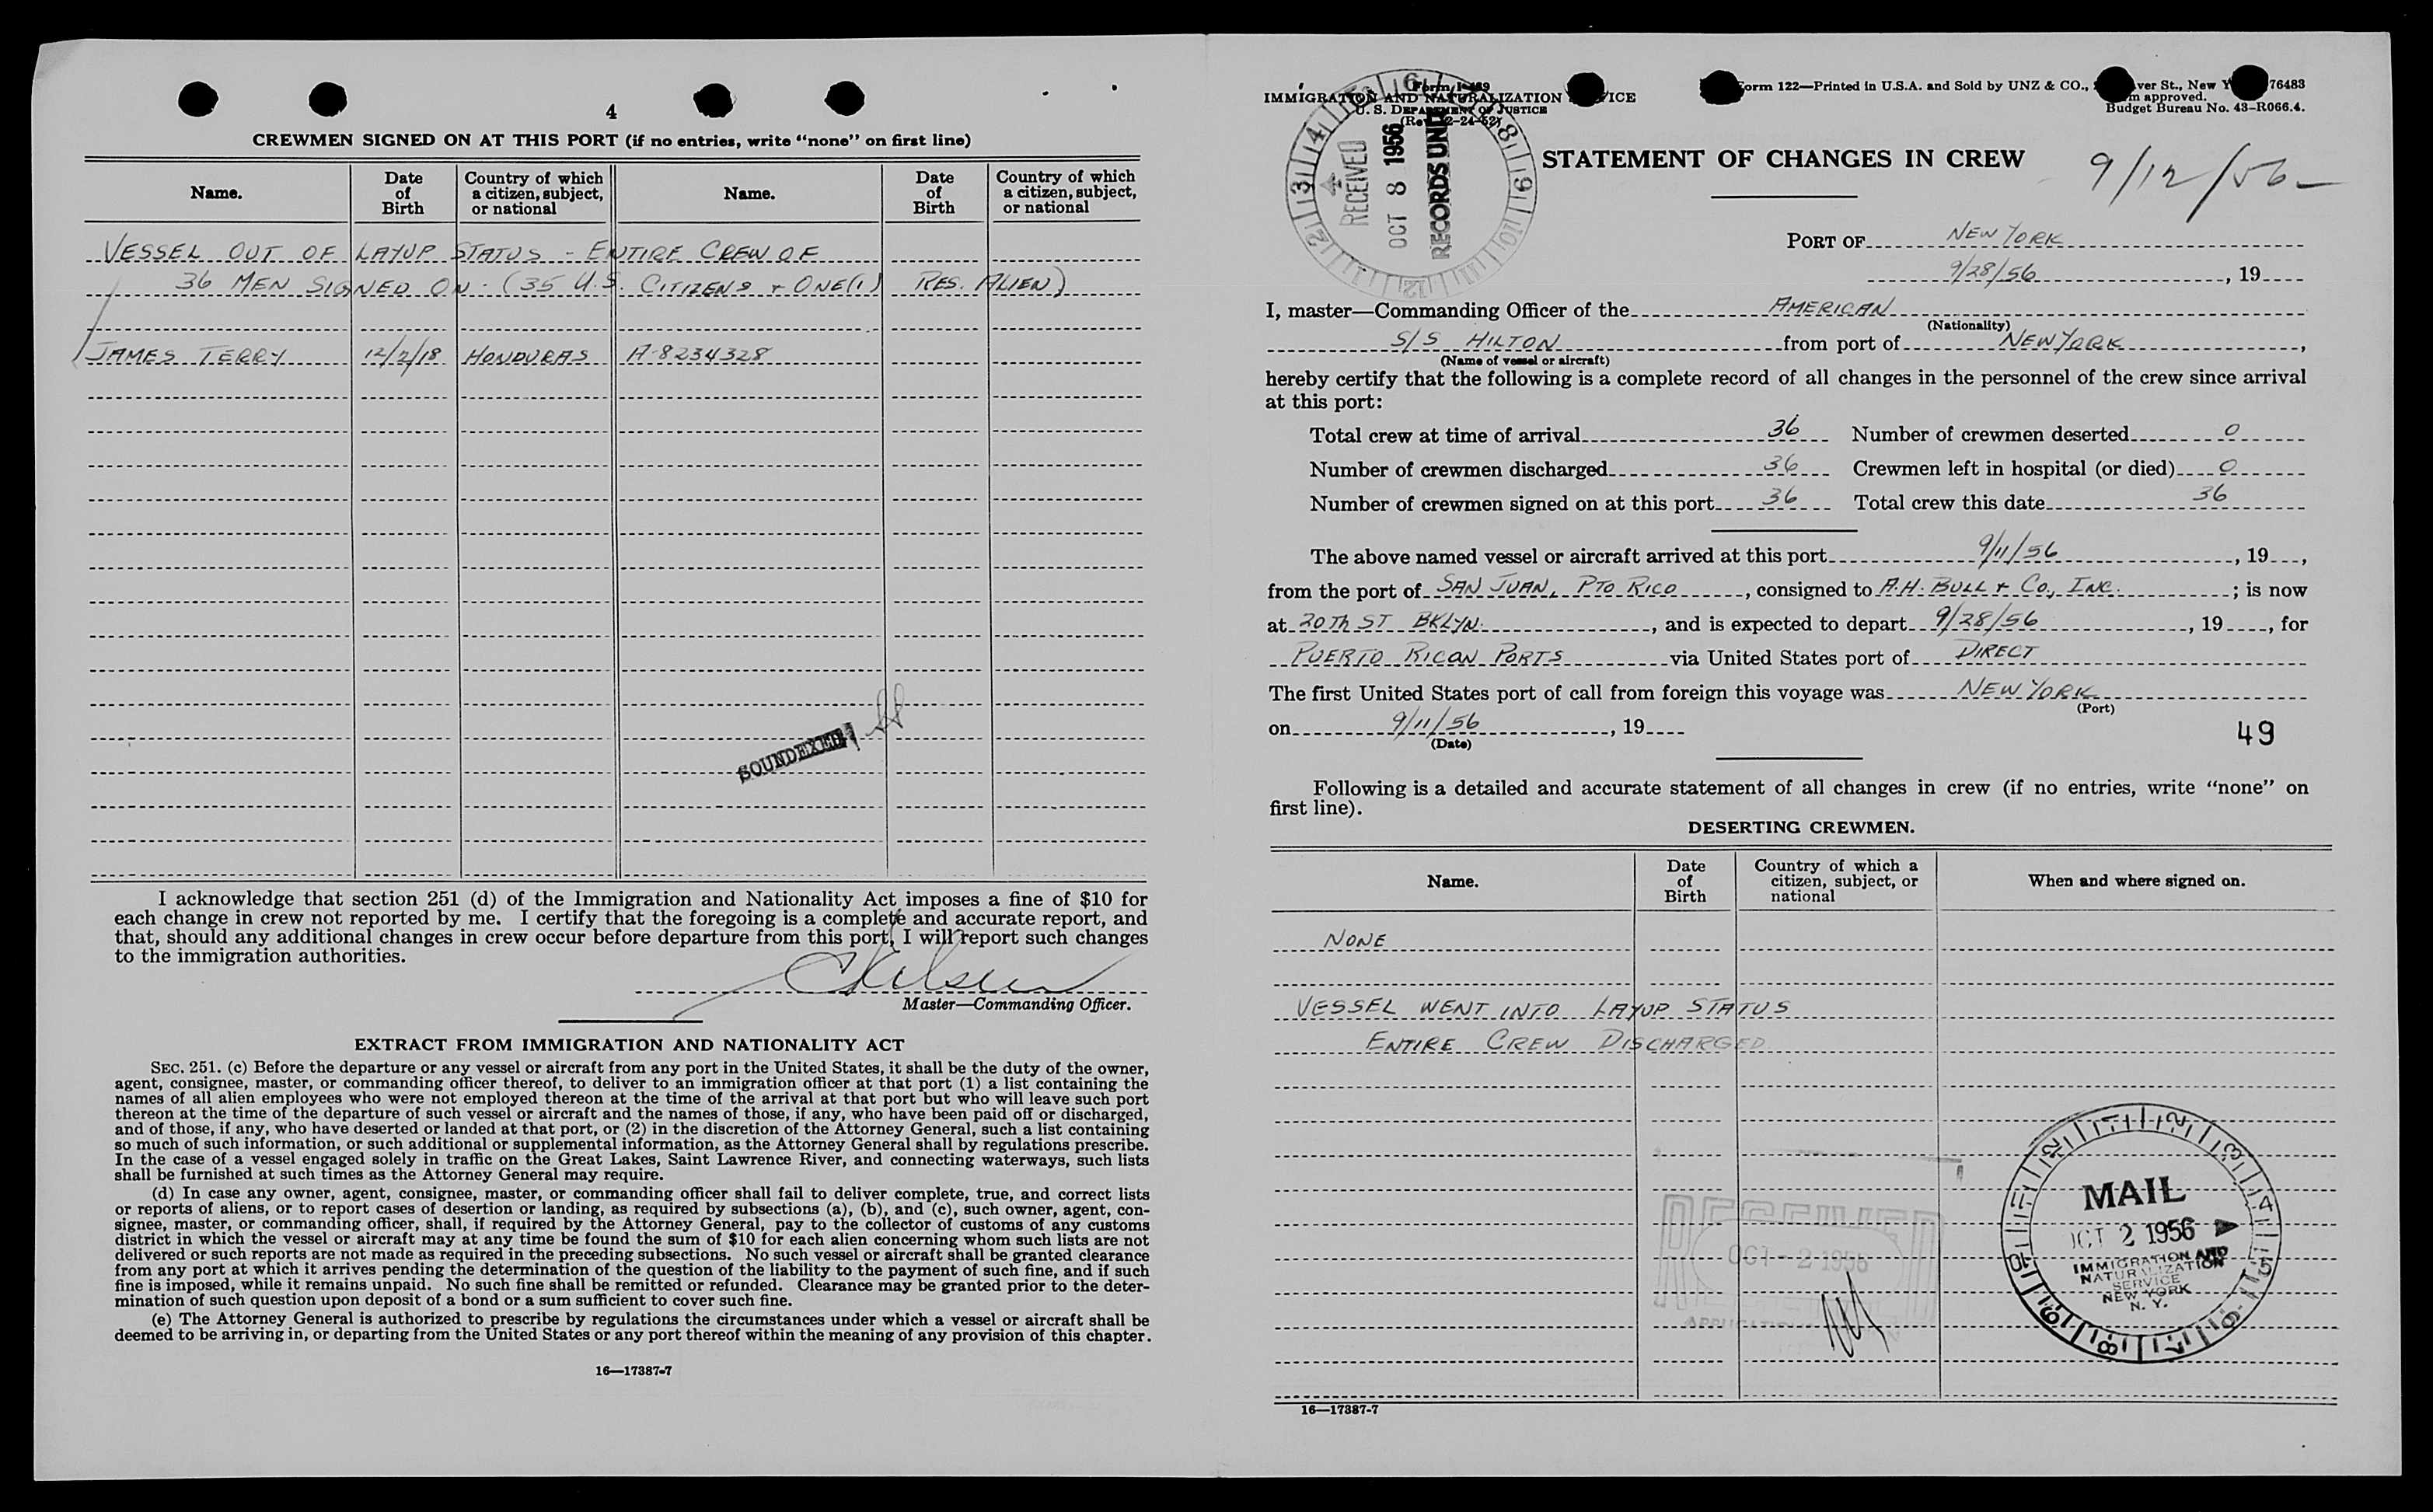 4
CREWMEN SIGNED ON AT THIS PORT (if no entries, write "none" on first line)
Name. Date of Birth Country of which a citizen, subject, or national Name. Date of Birth Country of which a citizen, subject, or national
VESSEL OUT OF LAYUP STATUS - ENTIRE CREW OF
36 MEN SIGNED ON - (35 U.S. CITIZENS + ONE (1) RES. ALIEN)
JAMES TERRY 12/2/18 HONDURAS A-8234328
SOUNDEXED
I acknowledge that section 251 (d) of the Immigration and Nationality Act imposes a fine of $10 for
each change in crew not reported by me. I certify that the foregoing is a complete and accurate report, and
that, should any additional changes in crew occur before departure from this port, I will report such changes
to the immigration authorities.
Master—Commanding Officer.
EXTRACT FROM IMMIGRATION AND NATIONALITY ACT
SEC. 251. (c) Before the departure of any vessel or aircraft from any port in the United States, it shall be the duty of the owner,
agent, consignee, master, or commanding officer thereof, to deliver to an immigration officer at that port (1) a list containing the
names of all alien employees who were not employed thereon at the time of the arrival at that port but who will leave such port
thereon at the time of the departure of such vessel or aircraft and the names of those, if any, who have been paid off or discharged,
and of those, if any, who have deserted or landed at that port, or (2) in the discretion of the Attorney General, such a list containing
so much of such information, or such additional or supplemental information, as the Attorney General shall by regulations prescribe.
In the case of a vessel engaged solely in traffic on the Great Lakes, Saint Lawrence River, and connecting waterways, such lists
shall be furnished at such times as the Attorney General may require.
(d) In case any owner, agent, consignee, master, or commanding officer shall fail to deliver complete, true, and correct lists
or reports of aliens, or to report cases of desertion or landing, as required by subsections (a), (b), and (c), such owner, agent, con-
signee, master, or commanding officer, shall, if required by the Attorney General, pay to the collector of customs of any customs
district in which the vessel or aircraft may at any time be found the sum of $10 for each alien concerning whom such lists are not
delivered or such reports are not made as required in the preceding subsections. No such vessel or aircraft shall be granted clearance
from any port at which it arrives pending the determination of the question of the liability to the payment of such fine, and if such
fine is imposed, while it remains unpaid. No such fine shall be remitted or refunded. Clearance may be granted prior to the deter-
mination of such question upon deposit of a bond or a sum sufficient to cover such fine.
(e) The Attorney General is authorized to prescribe by regulations the circumstances under which a vessel or aircraft shall be
deemed to be arriving in, or departing from the United States or any port thereof within the meaning of any provision of this chapter.
16—17387-7
IMMIGRATION AND NATURALIZATION
U. S. DEPARTMENT OF JUSTICE
Form 122—Printed in U.S.A. and Sold by UNZ & CO., St., New 76483
approved.
Budget Bureau No. 43-R066.4.
RECEIVED
OCT 8 1956
RECORDS UNIT
STATEMENT OF CHANGES IN CREW
9/12/56
PORT OF NEW YORK
9/28/56, 19
I, master—Commanding Officer of the AMERICAN
(Nationality)
S/S HILTON from port of NEW YORK,
(Name of vessel or aircraft)
hereby certify that the following is a complete record of all changes in the personnel of the crew since arrival
at this port:
Total crew at time of arrival 36 Number of crewmen deserted 0
Number of crewmen discharged 36 Crewmen left in hospital (or died) 0
Number of crewmen signed on at this port 36 Total crew this date 36
The above named vessel or aircraft arrived at this port 9/11/56, 19,
from the port of SAN JUAN, PTO RICO, consigned to A.H. BULL + CO., INC.; is now
at 20TH ST BKLYN., and is expected to depart 9/28/56, 19, for
PUERTO RICAN PORTS via United States port of DIRECT
The first United States port of call from foreign this voyage was NEW YORK
(Port)
on 9/11/56, 19
(Date)
49
Following is a detailed and accurate statement of all changes in crew (if no entries, write "none" on
first line).
DESERTING CREWMEN.
Name. Date of Birth Country of which a citizen, subject, or national When and where signed on.
NONE
VESSEL WENT INTO LAYUP STATUS
ENTIRE CREW DISCHARGED
RECEIVED
OCT - 2 1956
MAIL
OCT 2 1956
IMMIGRATION AND
NATURALIZATION
SERVICE
NEW YORK
N. Y.
16—17387-7